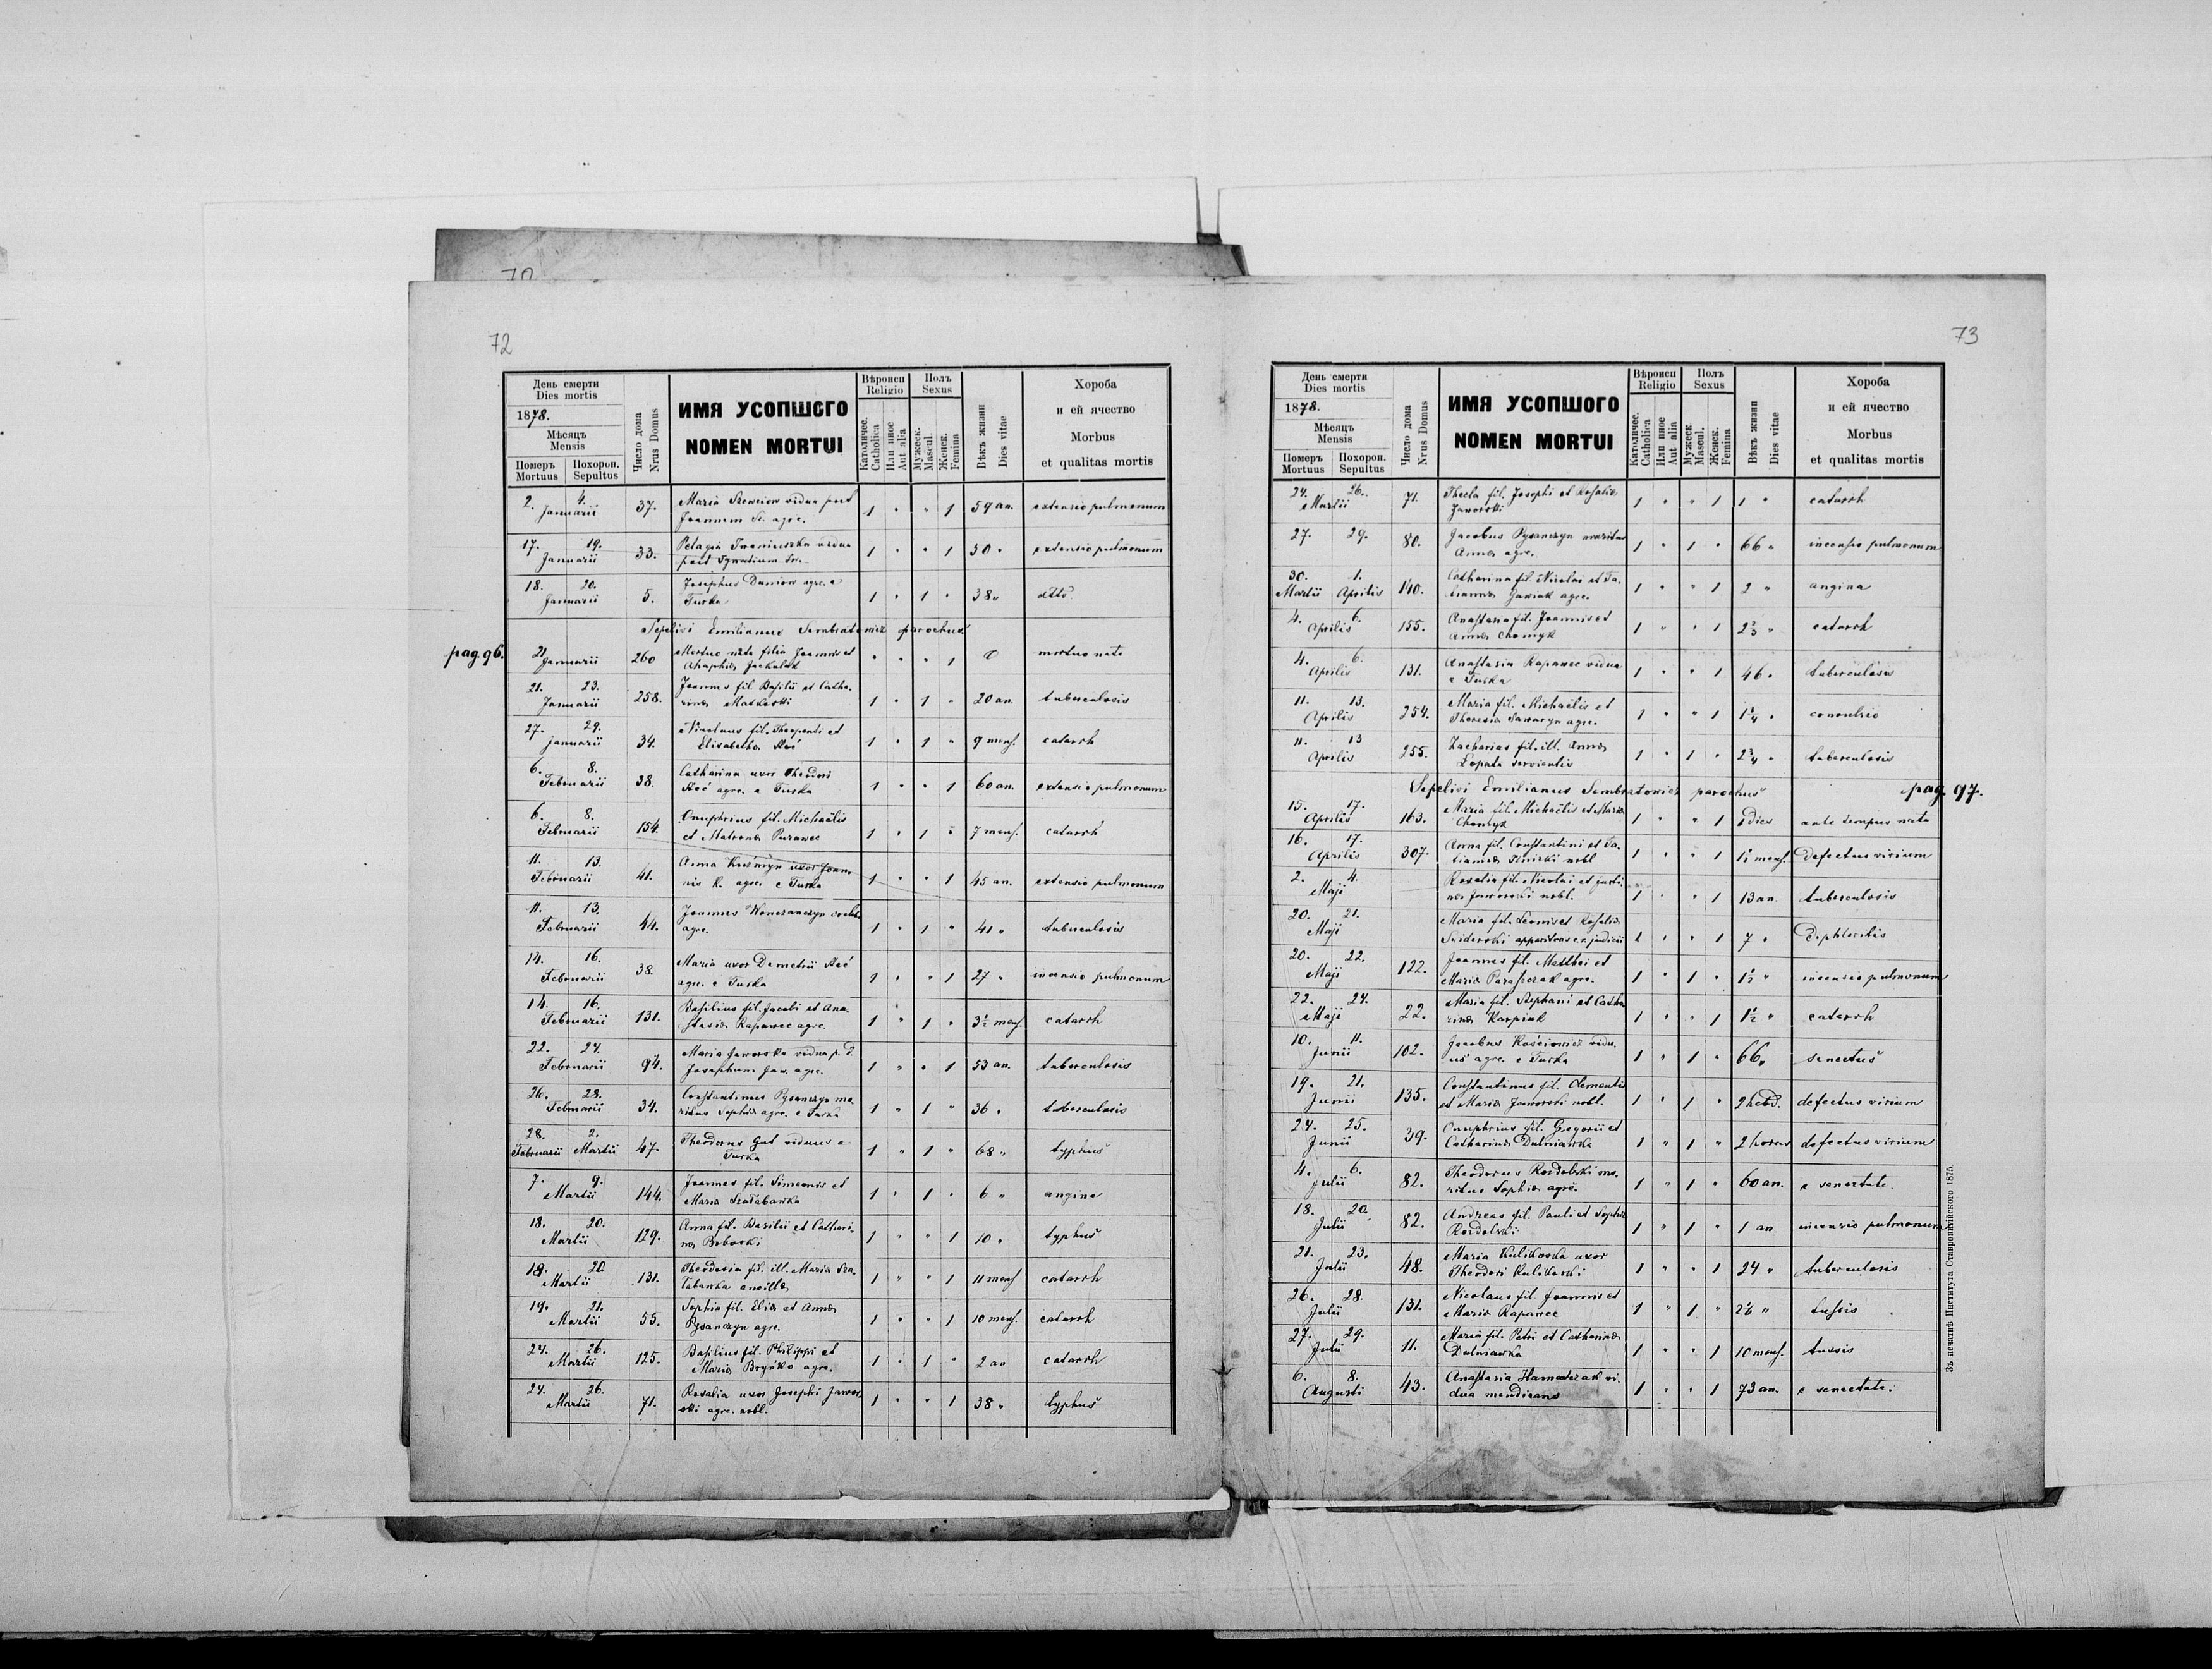 70
72
День смерти
Dies mortis
1878.
Мѣсяцъ
Mensis
Померъ Похорон.
Mortuus Sepultus
Число дома
Nrus Domus
ИМЯ УСОПШОГО
NOMEN MORTUI
Вѣроиси
Religio
Католичес.
Catholica
Или иное
Aut alia
Полъ
Sexus
Мужеск.
Mascul.
Женск.
Femina
Вѣкъ жизни
Dies vitae
Хороба
и ей ячество
Morbus
et qualitas mortis
2. 4. Januarii 37. Maria Szewciow vidua post 1 " " 1 59 an. extensio pulmonum
Joannem Sz. agr.
17. 19. Januarii 33. Pelagia Iwaniuszka vidua 1 " " 1 50 " extensio pulmonum
post Ignatium
18. 20. Januarii 5. Josephus Duniow agr. e 1 " 1 " 38 " dtto
Turka
Sepelivi Emilianus Sembratowicz parochus
pag. 96.
21. Januarii 260 Mortuo nata filia Joannis et " " " 1 0 mortuo nata
Ahaphia
21. 23. Januarii 258. Joannes fil. Basilii et Catha- 1 " 1 " 20 an. tuberculosis
rina
27. 29. Januarii 34. Nicolaus fil. et 1 " 1 " 9 mens. catarrh
Elisabetha
6. 8. Februarii 38. Catharina uxor Theodori 1 " " 1 60 an. extensio pulmonum
agr. e Turka
6. 8. Februarii 154. Onuphrius fil. Michaelis 1 " 1 " 7 mens. catarrh
et Matrona
11. 13. Februarii 41. Anna Kuśmyn uxor Joan- 1 " " 1 45 an. extensio pulmonum
nis K. agr. e Turka
11. 13. Februarii 44. Joannes 1 " 1 " 41 " tuberculosis
agr.
14. 16. Februarii 38. Maria uxor Demetrii 1 " " 1 27 " incensio pulmonum
agr. e Turka
14. 16. Februarii 131. Basilius fil. Jacobi et Ana- 1 " 1 " 3½ mens. catarrh
stasia Rapawec agr.
22. 24. Februarii 94. Maria Jaworska vidua p. 1 " " 1 53 an. tuberculosis
Josephum Jaw. agr.
26. 28. Februarii 34. Constantinus Pysanczyn ma- 1 " 1 " 36 " tuberculosis
ritus Sophia agr. e Turka
28. 2. Februarii Martii 47. Theodorus Gut viduus e 1 " 1 " 68 " typhus
Turka
7. 9. Martii 144. Joannes fil. Simeonis et 1 " 1 " 6 " angina
Maria Szałabawka
18. 20. Martii 129. Anna fil. Basilii et Cathari- 1 " " 1 10 " typhus
na Boberski
18. 20. Martii 131. Theodosia fil. ill. Maria Sza- 1 " " 1 11 mens. catarrh
łabawka ancilla
19. 21. Martii 55. Sophia fil. Elia et Anna 1 " " 1 10 mens. catarrh
Pysanczyn agr.
24. 26. Martii 125. Basilius fil. Philippi et 1 " 1 " 2 an catarrh
Maria Bryńko agr.
24. 26. Martii 71. Rosalia uxor Josephi Jawor- 1 " " 1 38 " typhus
ski agr. nobl.
73
День смерти
Dies mortis
1878.
Мѣсяцъ
Mensis
Померъ Похорон.
Mortuus Sepultus
Число дома
Nrus Domus
ИМЯ УСОПШОГО
NOMEN MORTUI
Вѣроиси
Religio
Католичес.
Catholica
Или иное
Aut alia
Полъ
Sexus
Мужеск.
Mascul.
Женск.
Femina
Вѣкъ жизни
Dies vitae
Хороба
и ей ячество
Morbus
et qualitas mortis
24. 26. Martii 71. Thecla fil. Josephi et Rosalia 1 " " 1 1 " catarrh
Jaworski
27. 29. 80. Jacobus Pysanczyn maritus 1 " 1 " 66 " incensio pulmonum
Anna agr.
30. 1. Martii Aprilis 140. Catharina fil. Nicolai et Ta- 1 " " 1 2 " angina
tianna agr.
4. 6. Aprilis 155. Anastasia fil. Joannis et 1 " " 1 2⅔ " catarrh
Anna Chomyk
4. 6. Aprilis 131. Anastasia Rapawec vidua 1 " " 1 46 " tuberculosa
e Turka
11. 13. Aprilis 254. Maria fil. Michaelis et 1 " " 1 1¼ " convulsio
Theresia Sawaryn agr.
11. 13 Aprilis 255. Zacharias fil. ill. Anna 1 " 1 " 2¾ " tuberculosis
Łopata servientis
Sepelivi Emilianus Sembratowicz parochus
pag. 97.
15. 17. Aprilis 163. Maria fil. Michaelis et Maria 1 " " 1 1 dies ante tempus nata
Chomyk
16. 17. Aprilis 307. Anna fil. Constantini et Ta- 1 " " 1 1½ mens. defectus virium
tianna Ilnicki nobl
2. 4. Maji Rosalia fil. Nicolai et Justi- 1 " " 1 13 an. tuberculosis
na Jaworski nobl.
20. 21. Maji Maria fil. Leonis et Rosalia 1 " " 1 7 " diphteritis
Sviderski apparitoras ex judicii
20. 22. Maji 122. Joannes fil. Matthei et 1 " 1 " 1½ " incensio pulmonum
Maria Paraszczak agr.
22. 24. Maji 22. Maria fil. Stephani et Catha- 1 " " 1 1½ " catarrh
rina Karpiak
10. 11. Junii 102. Jacobus Kościowicz vidu- 1 " 1 " 66 " senectus
us agr. e Turka
19. 21. Junii 135. Constantinus fil. Clementis 1 " 1 " 2 hebd. defectus virium
et Maria Jaworski nobl.
24. 25. Junii 39. Onuphrius fil. Gregorii et 1 " 1 " 2 horas defectus virium
Catharina Dulniawka
4. 6. Julii 82. Theodorus Rozdolski ma- 1 " 1 " 60 an. e senectute.
ritus Sophia agr.
18. 20. Julii 82. Andreas fil. Pauli et Sophia 1 " 1 " 1 an incensio pulmonum
Rozdolski
21. 23. Julii 48. Maria Kulikoska uxor 1 " " 1 24 " tuberculosis
Theodori Kulikoski
26. 28. Julii 131. Nicolaus fil. Joannis et 1 " 1 " " tussis
Maria Rapawec
27. 29. Julii 11. Maria fil. Petri et Catharina 1 " " 1 10 mens. tussis
Dulniawka
6. 8. Augusti 43. Anastasia vi- 1 " " 1 73 an. e senectute.
dua mendicans
Зъ печатнѣ Института Ставропигійского 1875.